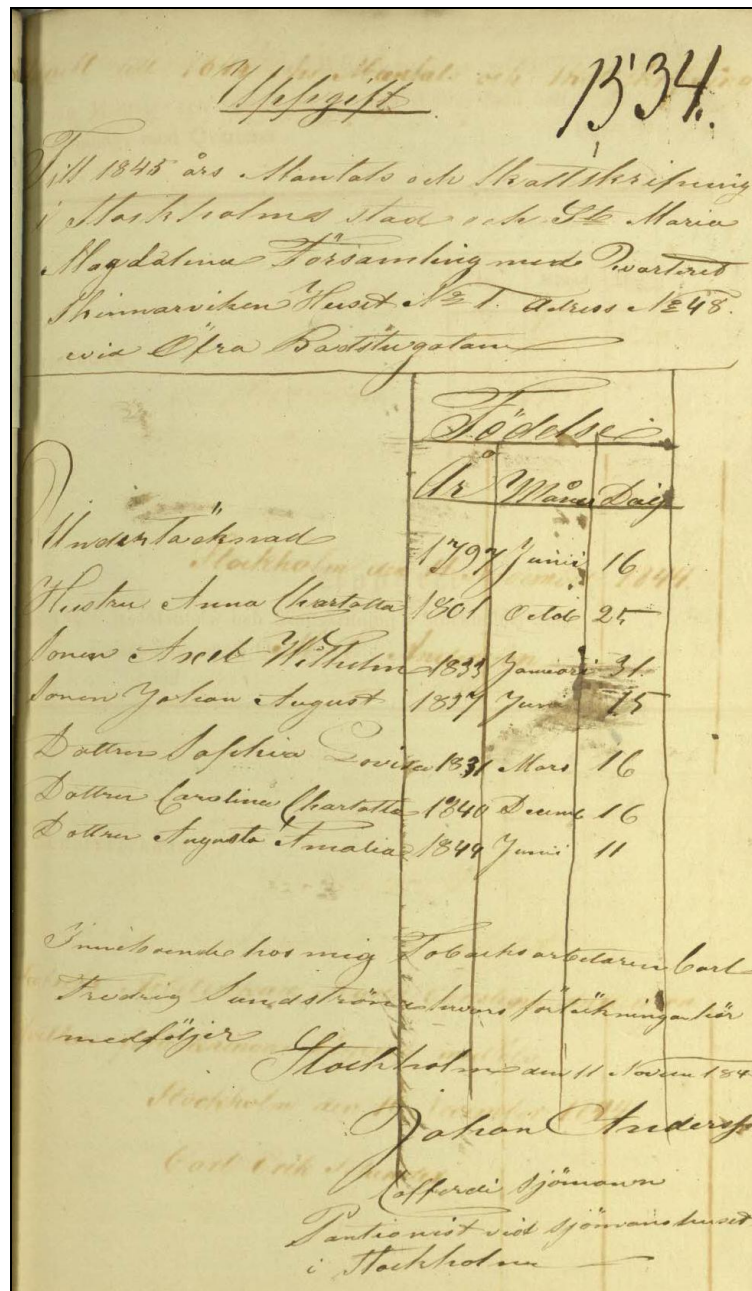 Uppgift
1534.
Till 1845 års Mantals och Skattskrifning
i Stockholms stad och S:ta Maria
Magdalena Församling med Qvarteret
Skinnarviken Huset No 1. Adress No 48.
wid Öfra Badstugatan
Födelse
År Månad Dag
Undertäcknad 1797 Junii 16
Hustru Anna Charlotta 1801 Octob 25
Sonen Axel Wilhelm 1833 Januari 31
Sonen Johan August 1837 Juni 15
Dottren Sophia Lovisa 1831 Mars 16
Dottren Carolina Charlotta 1840 Decemb 16
Dottren Augusta Amalia 1844 Junii 11
Inneboende hos mig Tobacksarbetaren Carl
Fredrig Sundström hvars förtäkningar här
medföljer
Stockholm den 11 Novem 184
Johan Anderss
Cofferdi sjömann
Pantionist vid sjömanshuset
i Stockholm